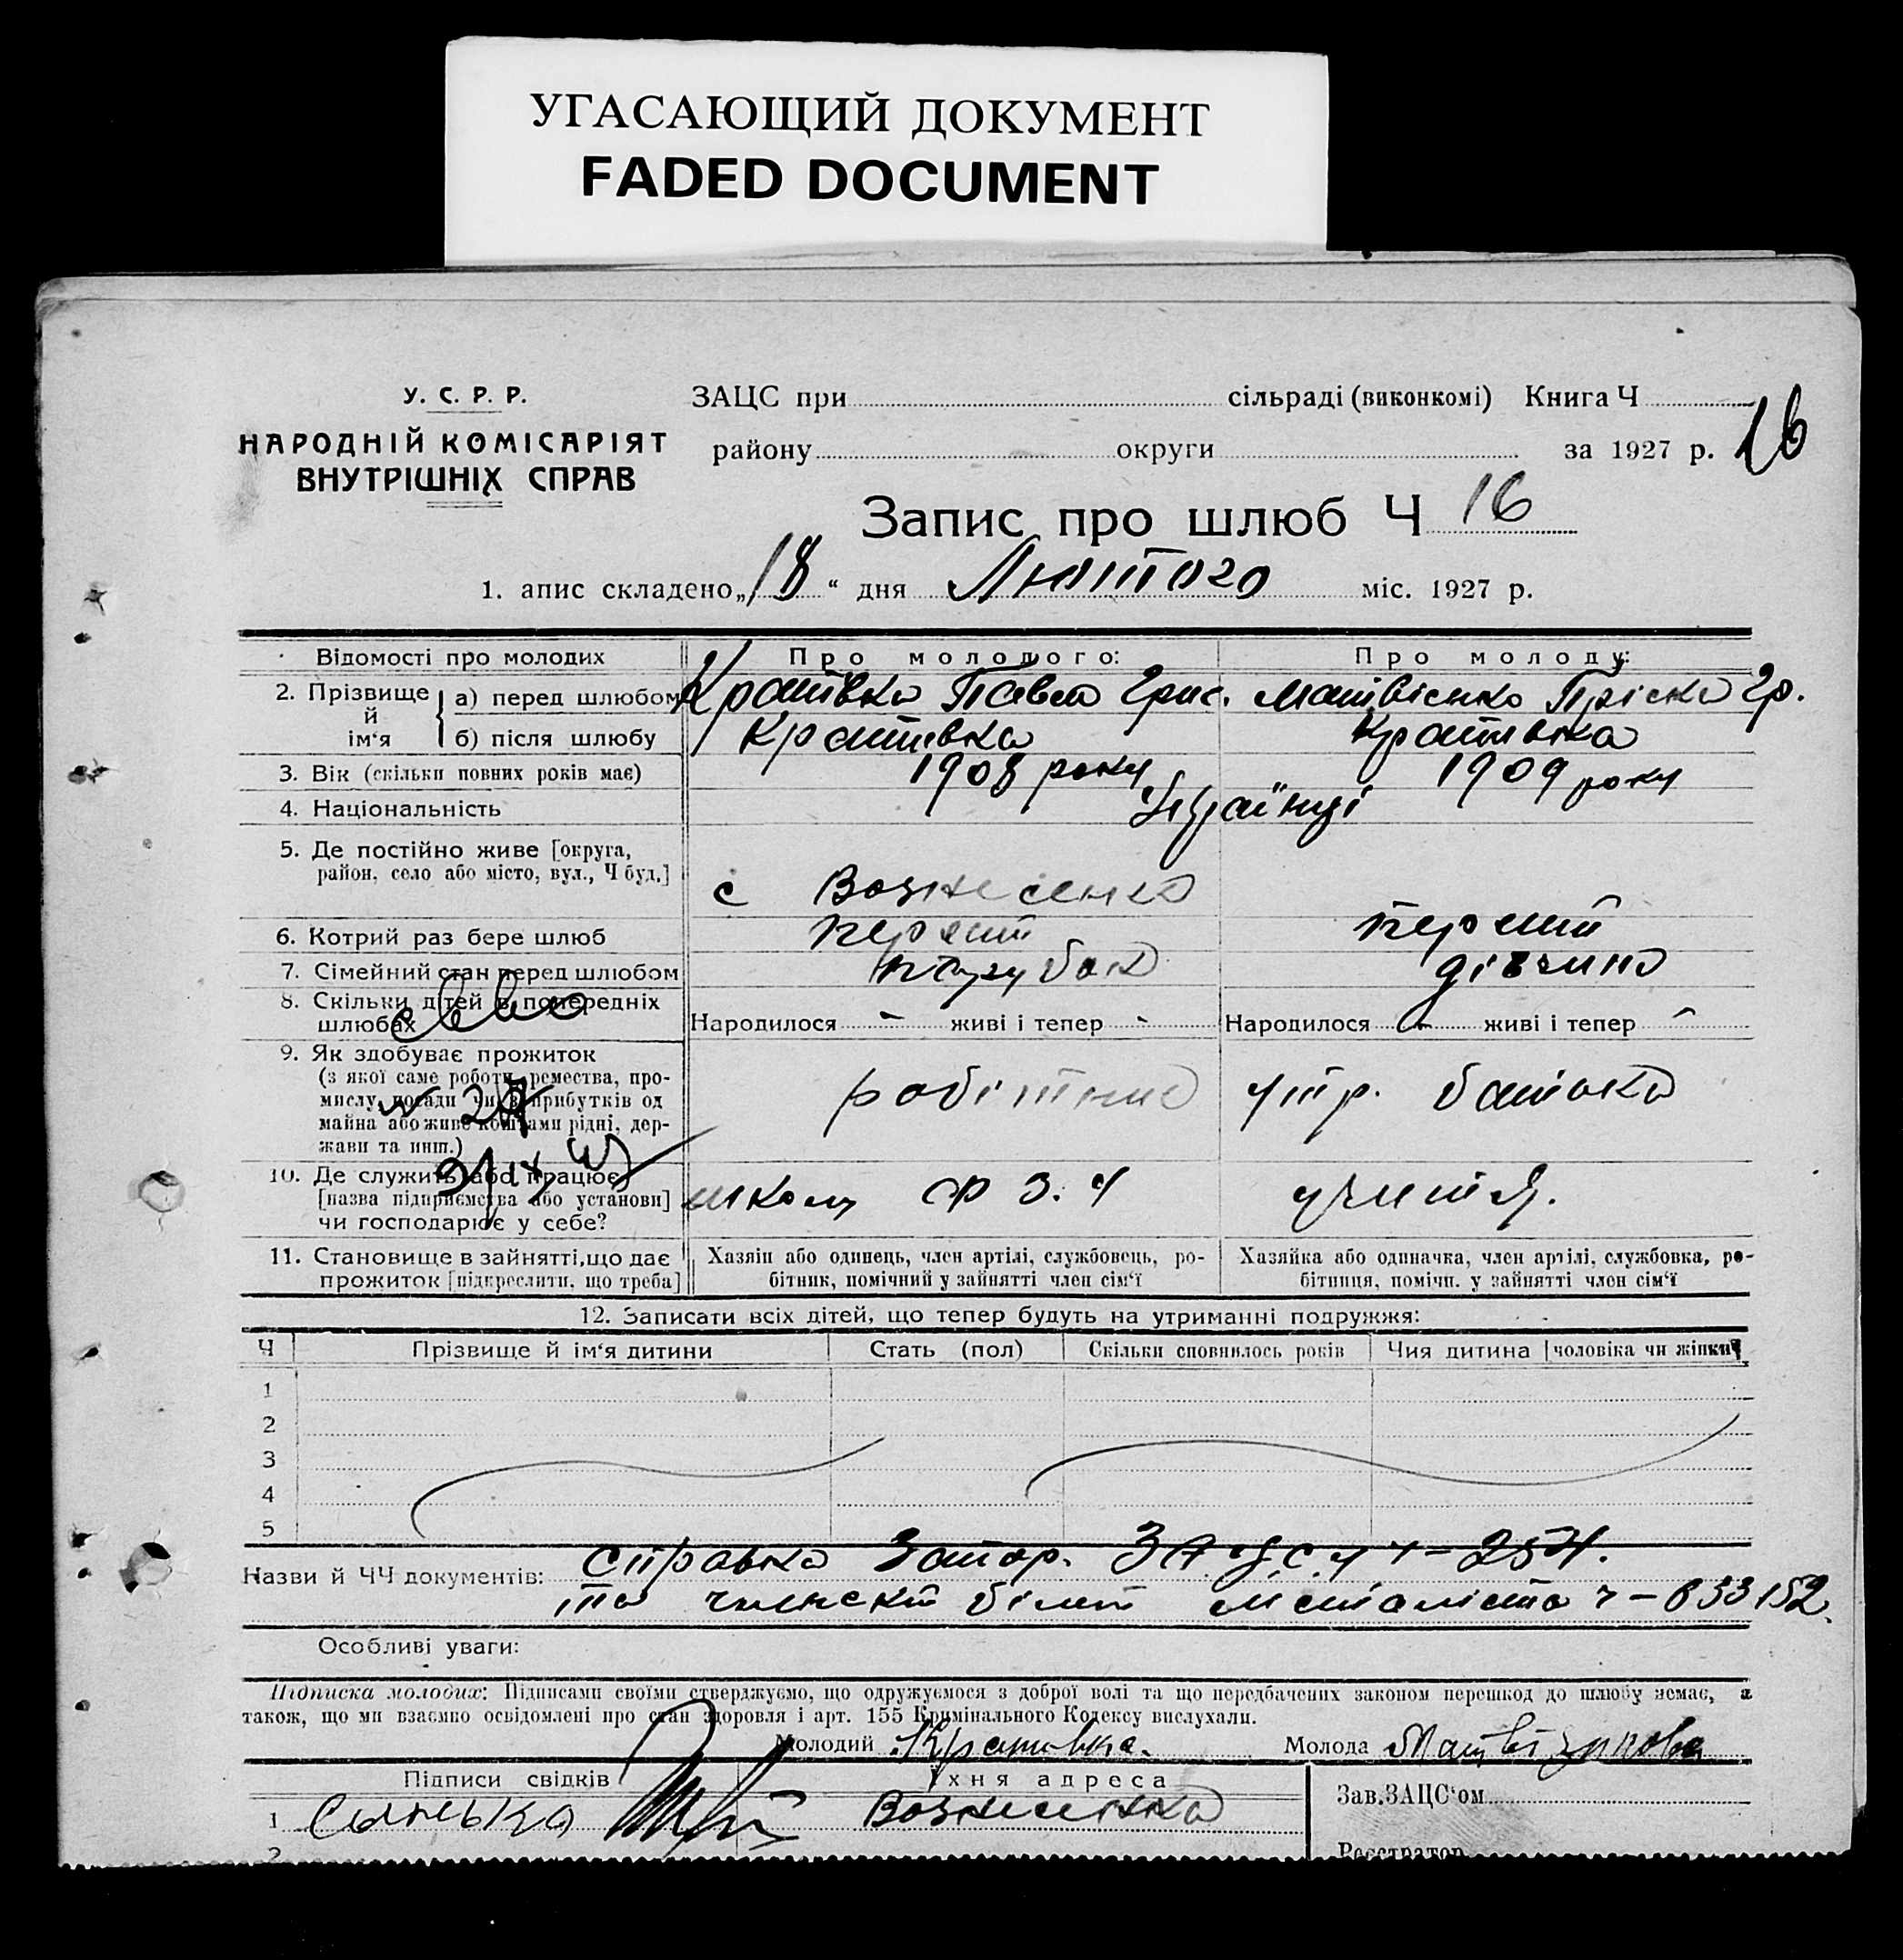 УГАСАЮЩИЙ ДОКУМЕНТ
FADED DOCUMENT
У. С. Р. Р.
НАРОДНІЙ КОМІСАРІЯТ
ВНУТРІШНІХ СПРАВ
ЗАЦС при сільраді (виконкомі) Книга Ч
району округи за 1927 р. 16
Запис про шлюб Ч 16
1. апис складено „18“ дня Лютого міс. 1927 р.
Відомості про молодих Про молодого: Про молоду:
2. Прізвище й ім‘я
а) перед шлюбом Кратівка Павло Григ. Матвієнко Пріска Гр.
б) після шлюбу Кратівка Кратівка
3. Вік (скільки повних років має) 1908 року 1909 року
4. Національність Українці
5. Де постійно живе [округа,
район, село або місто, вул., Ч буд.] с Вознесенка
6. Котрий раз бере шлюб перший перший
7. Сімейний стан перед шлюбом парубок дівчина
8. Скільки дітей в попередніх
шлюбах Народилося - живі і тепер - Народилося - живі і тепер -
9. Як здобуває прожиток
(з якої саме роботи, ремества, про-
мислу, посади чи з прибутків од
майна або живе коштами рідні, дер-
жави та инш.) робітник утр. батька
10. Де служить або працює
[назва підприємства або установи]
чи господарює у себе? школи Ф З. У
11. Становище в зайнятті, що дає
прожиток [підкреслити, що треба]
Хазяїн або одинець, член артілі, службовець, ро-
бітник, помічний у зайнятті член сім‘ї
Хазяйка або одиначка, член артілі, службовка, ро-
бітниця, помічн. у зайнятті член сім‘ї
12. Записати всіх дітей, що тепер будуть на утриманні подружжя:
Ч Прізвище й ім‘я дитини Стать (пол) Скільки сповнилось років Чия дитина [чоловіка чи жінки]
1
2
3
4
5
Назви й ЧЧ документів: справка Запор. ЗАЦСу ч - 254.
та членский білет металіста ч - 633152.
Особливі уваги:
Підписка молодих: Підписами своїми стверджуємо, що одружуємося з доброї волі та що передбачених законом перешкод до шлюбу немає, а
також, що ми взаємно освідомлені про стан здоровля і арт. 155 Кримінального Кодексу вислухали.
Молодий Кратівка. Молода
Підписи свідків Їхня адреса Зав. ЗАЦС‘ом
1 Вознесенка
2 Реєстратор